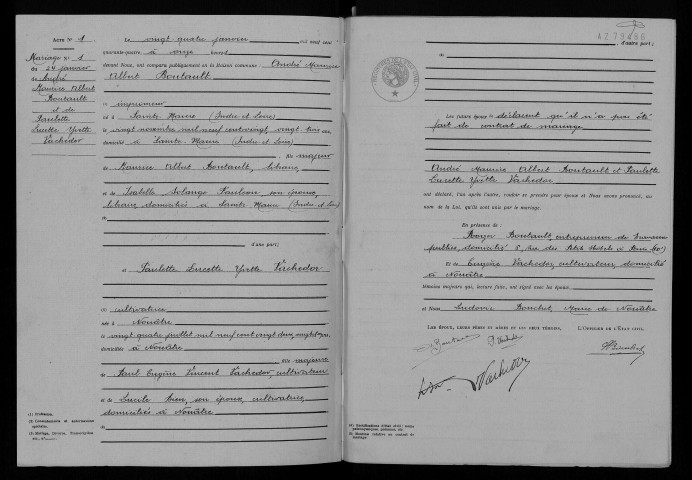 Acte N° 1
Mariage N° 1
du 24 janvier
de André
Maurice Albert
Boutault
et de
Paulette
Lucette Yvette
Vachedor
Le vingt quatre janvier mil neuf cent
quarante-quatre, à onze heures
devant Nous, ont comparu publiquement en la Maison commune : André Maurice
Albert Boutault
imprimeur
né à Sainte Maure (Indre et Loire)
le vingt novembre mil neuf cent vingt, vingt trois ans,
domicilié à Sainte-Maure (Indre et Loire)
fils majeur
de Maurice Albert Boutault, libraire,
et de Isabelle Solange son épouse,
libraire, domiciliés à Sainte Maure (Indre et Loire)
d'une part;
et Paulette Lucette Yvette Vachedor
cultivatrice
née à Nouâtre
le vingt quatre juillet mil neuf cent vingt deux, vingt et un ans,
domiciliée à Nouâtre
fille majeure
de Paul Eugène Vincent Vachedor, cultivateur
et de Lucile son épouse, cultivatrice,
domiciliés à Nouâtre
(1) Profession.
AZ 79488
d'autre part;
Les futurs époux déclarent qu'il n'a pas été
fait de contrat de mariage
André Maurice Albert Boutault et Paulette
Lucette Yvette Vachedor
ont déclaré, l'un après l'autre, vouloir se prendre pour époux et Nous avons prononcé, au
nom de la Loi, qu'ils sont unis par le mariage.
En présence de :
Roger Boutault, entrepreneur de travaux
publics, domicilié 8, rue des Petits Hôtels à Paris (10e)
et de Eugène Vachedor, cultivateur, domicilié
à Nouâtre
témoins majeurs qui, lecture faite, ont signé avec les époux
et Nous Ludovic Bouchet, Maire de Nouâtre
Les époux, leurs pères et mères et les deux témoins, L'Officier de l'État civil,
Vachedor